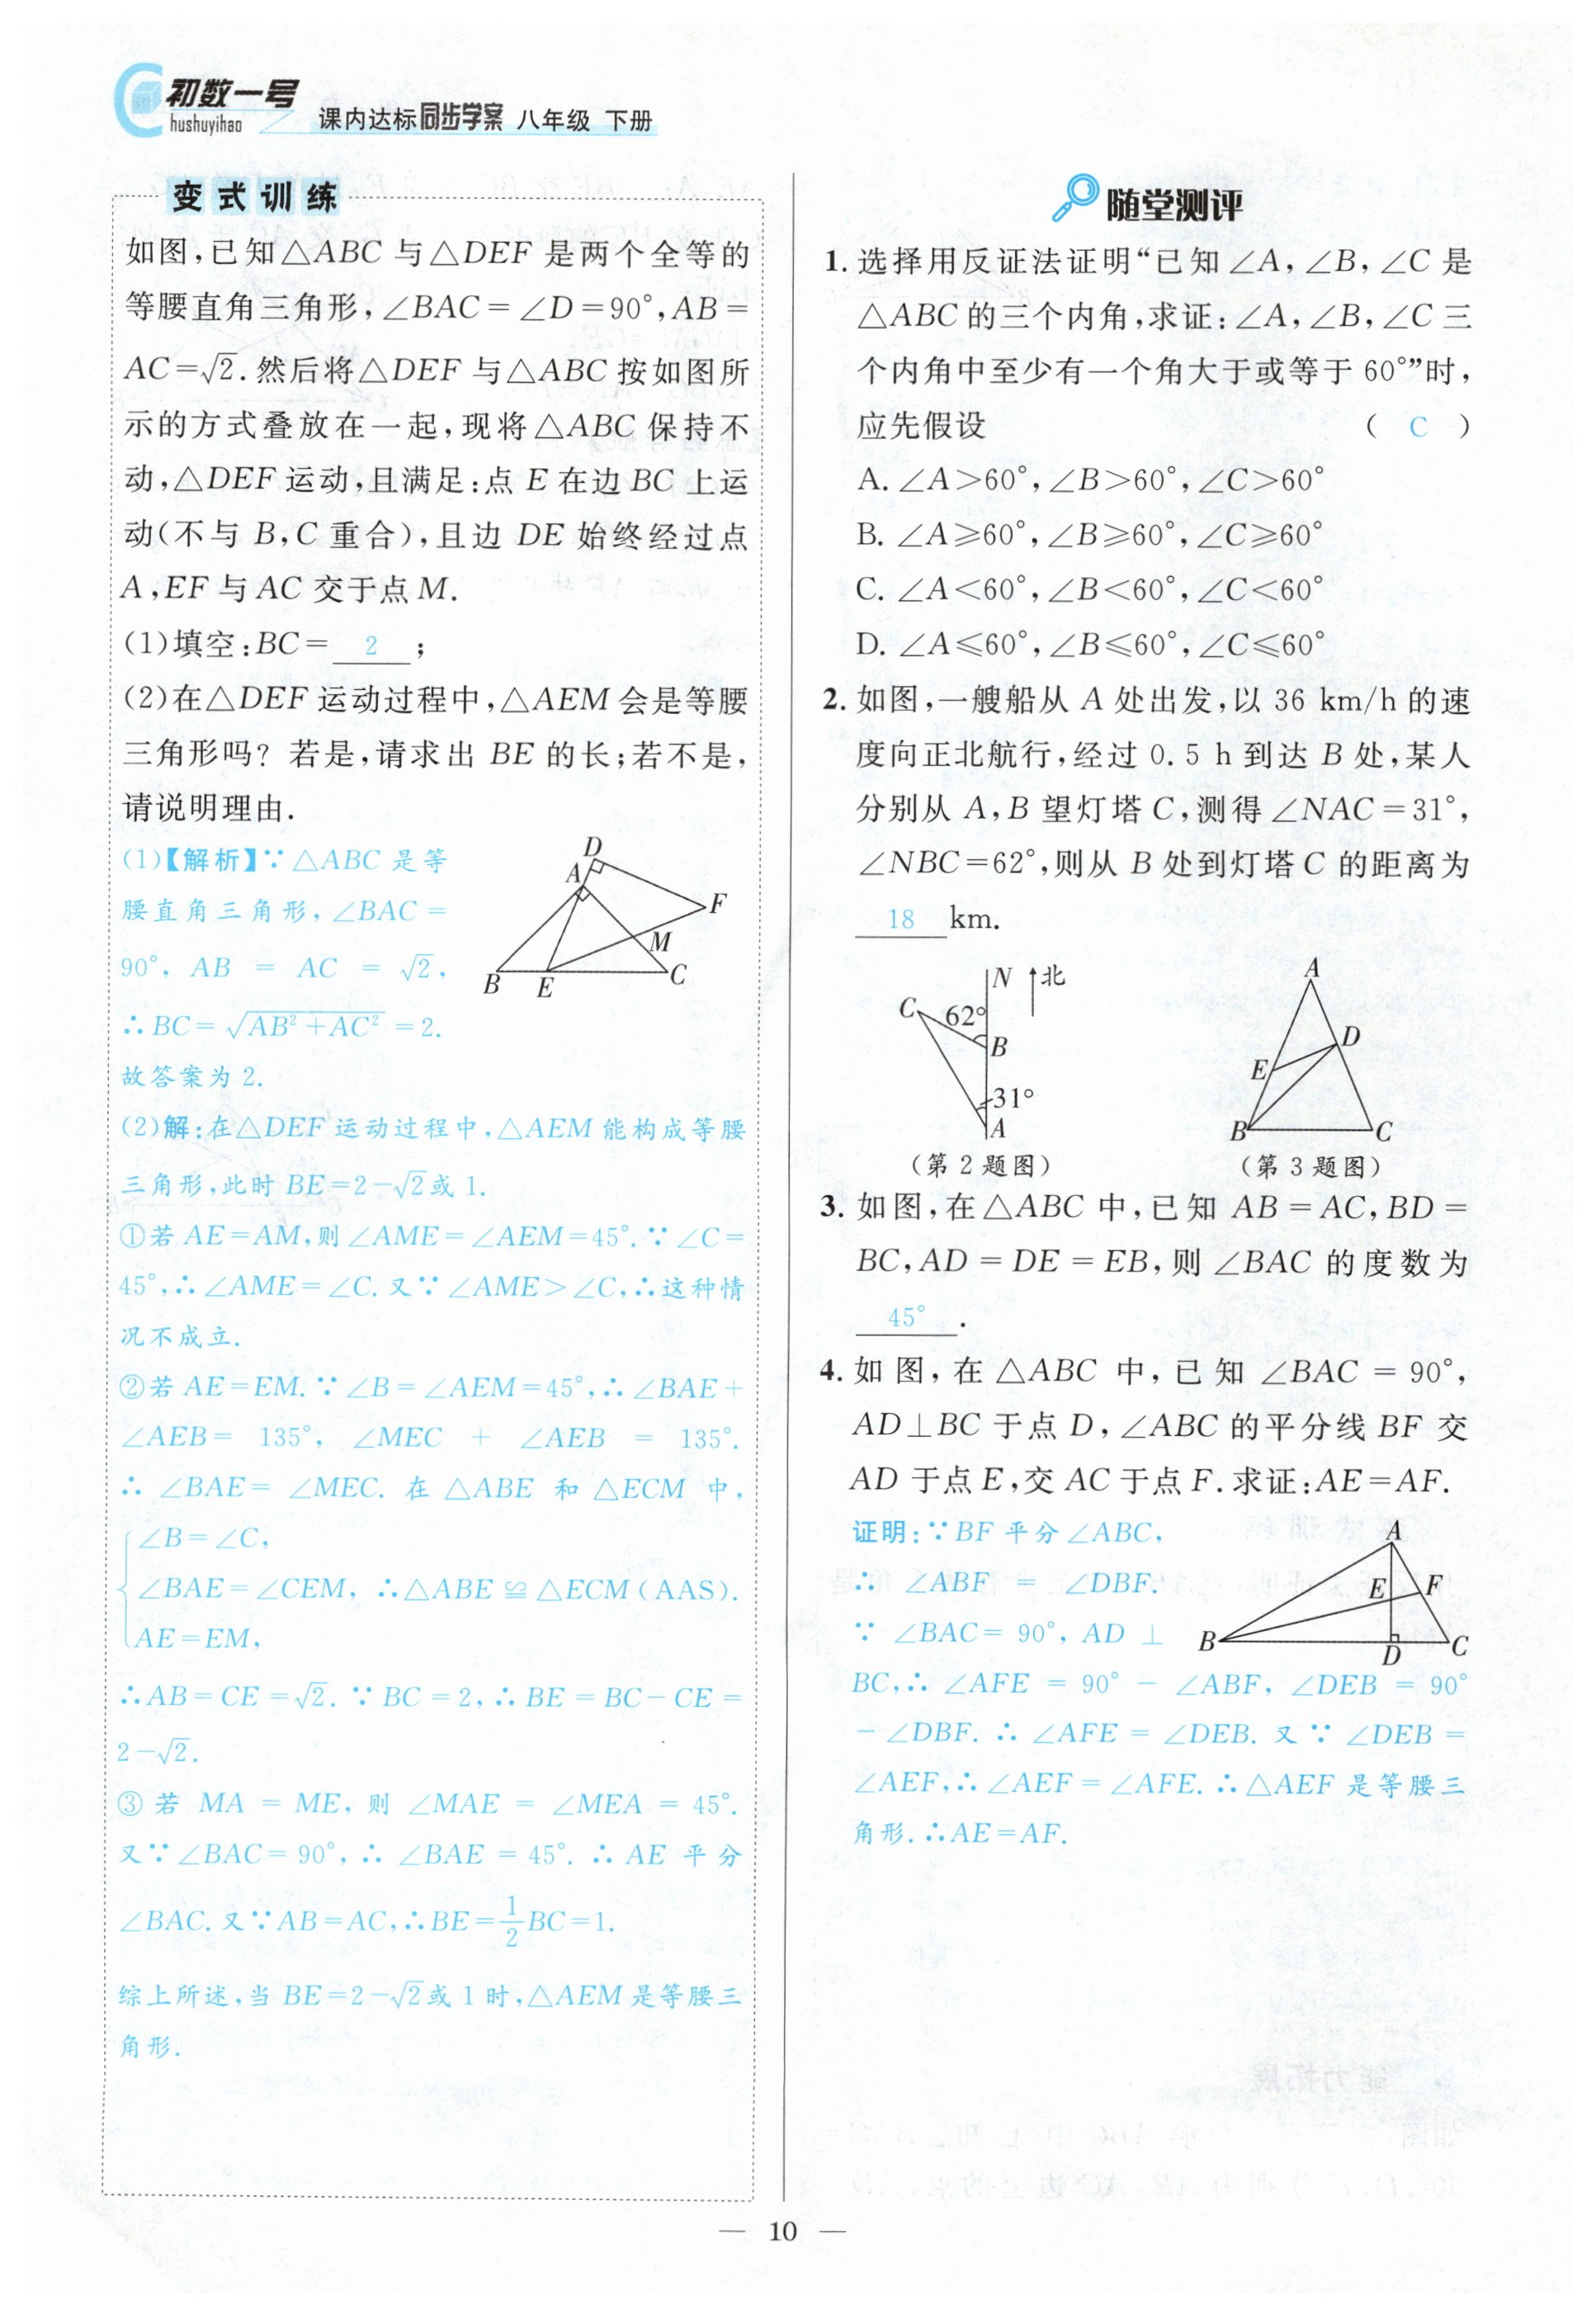 初数一号
hushuyihao
课内达标同步学案 八年级 下册
变式训练
如图,已知△ABC 与△DEF 是两个全等的
等腰直角三角形,∠BAC=∠D=90°,AB=
AC=√2.然后将△DEF 与△ABC 按如图所
示的方式叠放在一起,现将△ABC 保持不
动,△DEF 运动,且满足:点 E 在边 BC 上运
动(不与 B,C 重合),且边 DE 始终经过点
A,EF 与 AC 交于点 M.
(1)填空:BC= 2 ;
(2)在△DEF 运动过程中,△AEM 会是等腰
三角形吗? 若是,请求出 BE 的长;若不是,
请说明理由.
(1)【解析】∵△ABC 是等
腰直角三角形,∠BAC=
90°, AB = AC = √2,
∴BC=√(AB²+AC²)=2.
故答案为 2.
D
A
F
M
B
E
C
(2)解:在△DEF 运动过程中,△AEM 能构成等腰
三角形,此时 BE=2-√2或 1.
①若 AE=AM,则∠AME=∠AEM=45°.∵∠C=
45°,∴∠AME=∠C.又∵∠AME>∠C,∴这种情
况不成立.
②若 AE=EM.∵∠B=∠AEM=45°,∴∠BAE+
∠AEB= 135°, ∠MEC + ∠AEB = 135°.
∴ ∠BAE= ∠MEC. 在 △ABE 和 △ECM 中,
∠B=∠C,
∠BAE=∠CEM, ∴△ABE≌△ECM(AAS).
AE=EM,
∴AB=CE=√2.∵BC=2,∴BE=BC-CE=
2-√2.
③若 MA = ME, 则 ∠MAE = ∠MEA = 45°.
又∵∠BAC=90°,∴∠BAE=45°.∴AE 平分
∠BAC.又∵AB=AC,∴BE=1/2BC=1.
综上所述,当 BE=2-√2或 1 时,△AEM 是等腰三
角形.
随堂测评
1. 选择用反证法证明“已知∠A,∠B,∠C 是
△ABC 的三个内角,求证:∠A,∠B,∠C 三
个内角中至少有一个角大于或等于 60°”时,
应先假设 ( C )
A. ∠A>60°,∠B>60°,∠C>60°
B. ∠A⩾60°,∠B⩾60°,∠C⩾60°
C. ∠A<60°,∠B<60°,∠C<60°
D. ∠A⩽60°,∠B⩽60°,∠C⩽60°
2. 如图,一艘船从 A 处出发,以 36 km/h 的速
度向正北航行,经过 0.5 h 到达 B 处,某人
分别从 A,B 望灯塔 C,测得∠NAC=31°,
∠NBC=62°,则从 B 处到灯塔 C 的距离为
18 km.
N
北
C
62°
B
31°
A
(第 2 题图)
A
D
E
B
C
(第 3 题图)
3. 如图,在△ABC 中,已知 AB=AC,BD=
BC,AD=DE=EB,则∠BAC 的度数为
45° .
4. 如图,在△ABC 中,已知∠BAC=90°,
AD⊥BC 于点 D,∠ABC 的平分线 BF 交
AD 于点 E,交 AC 于点 F.求证:AE=AF.
证明:∵BF 平分∠ABC,
∴ ∠ABF = ∠DBF.
∵ ∠BAC= 90°, AD ⊥
A
E
F
B
D
C
BC,∴ ∠AFE = 90° - ∠ABF, ∠DEB = 90°
- ∠DBF. ∴ ∠AFE = ∠DEB. 又∵ ∠DEB =
∠AEF,∴∠AEF=∠AFE.∴△AEF 是等腰三
角形.∴AE=AF.
— 10 —